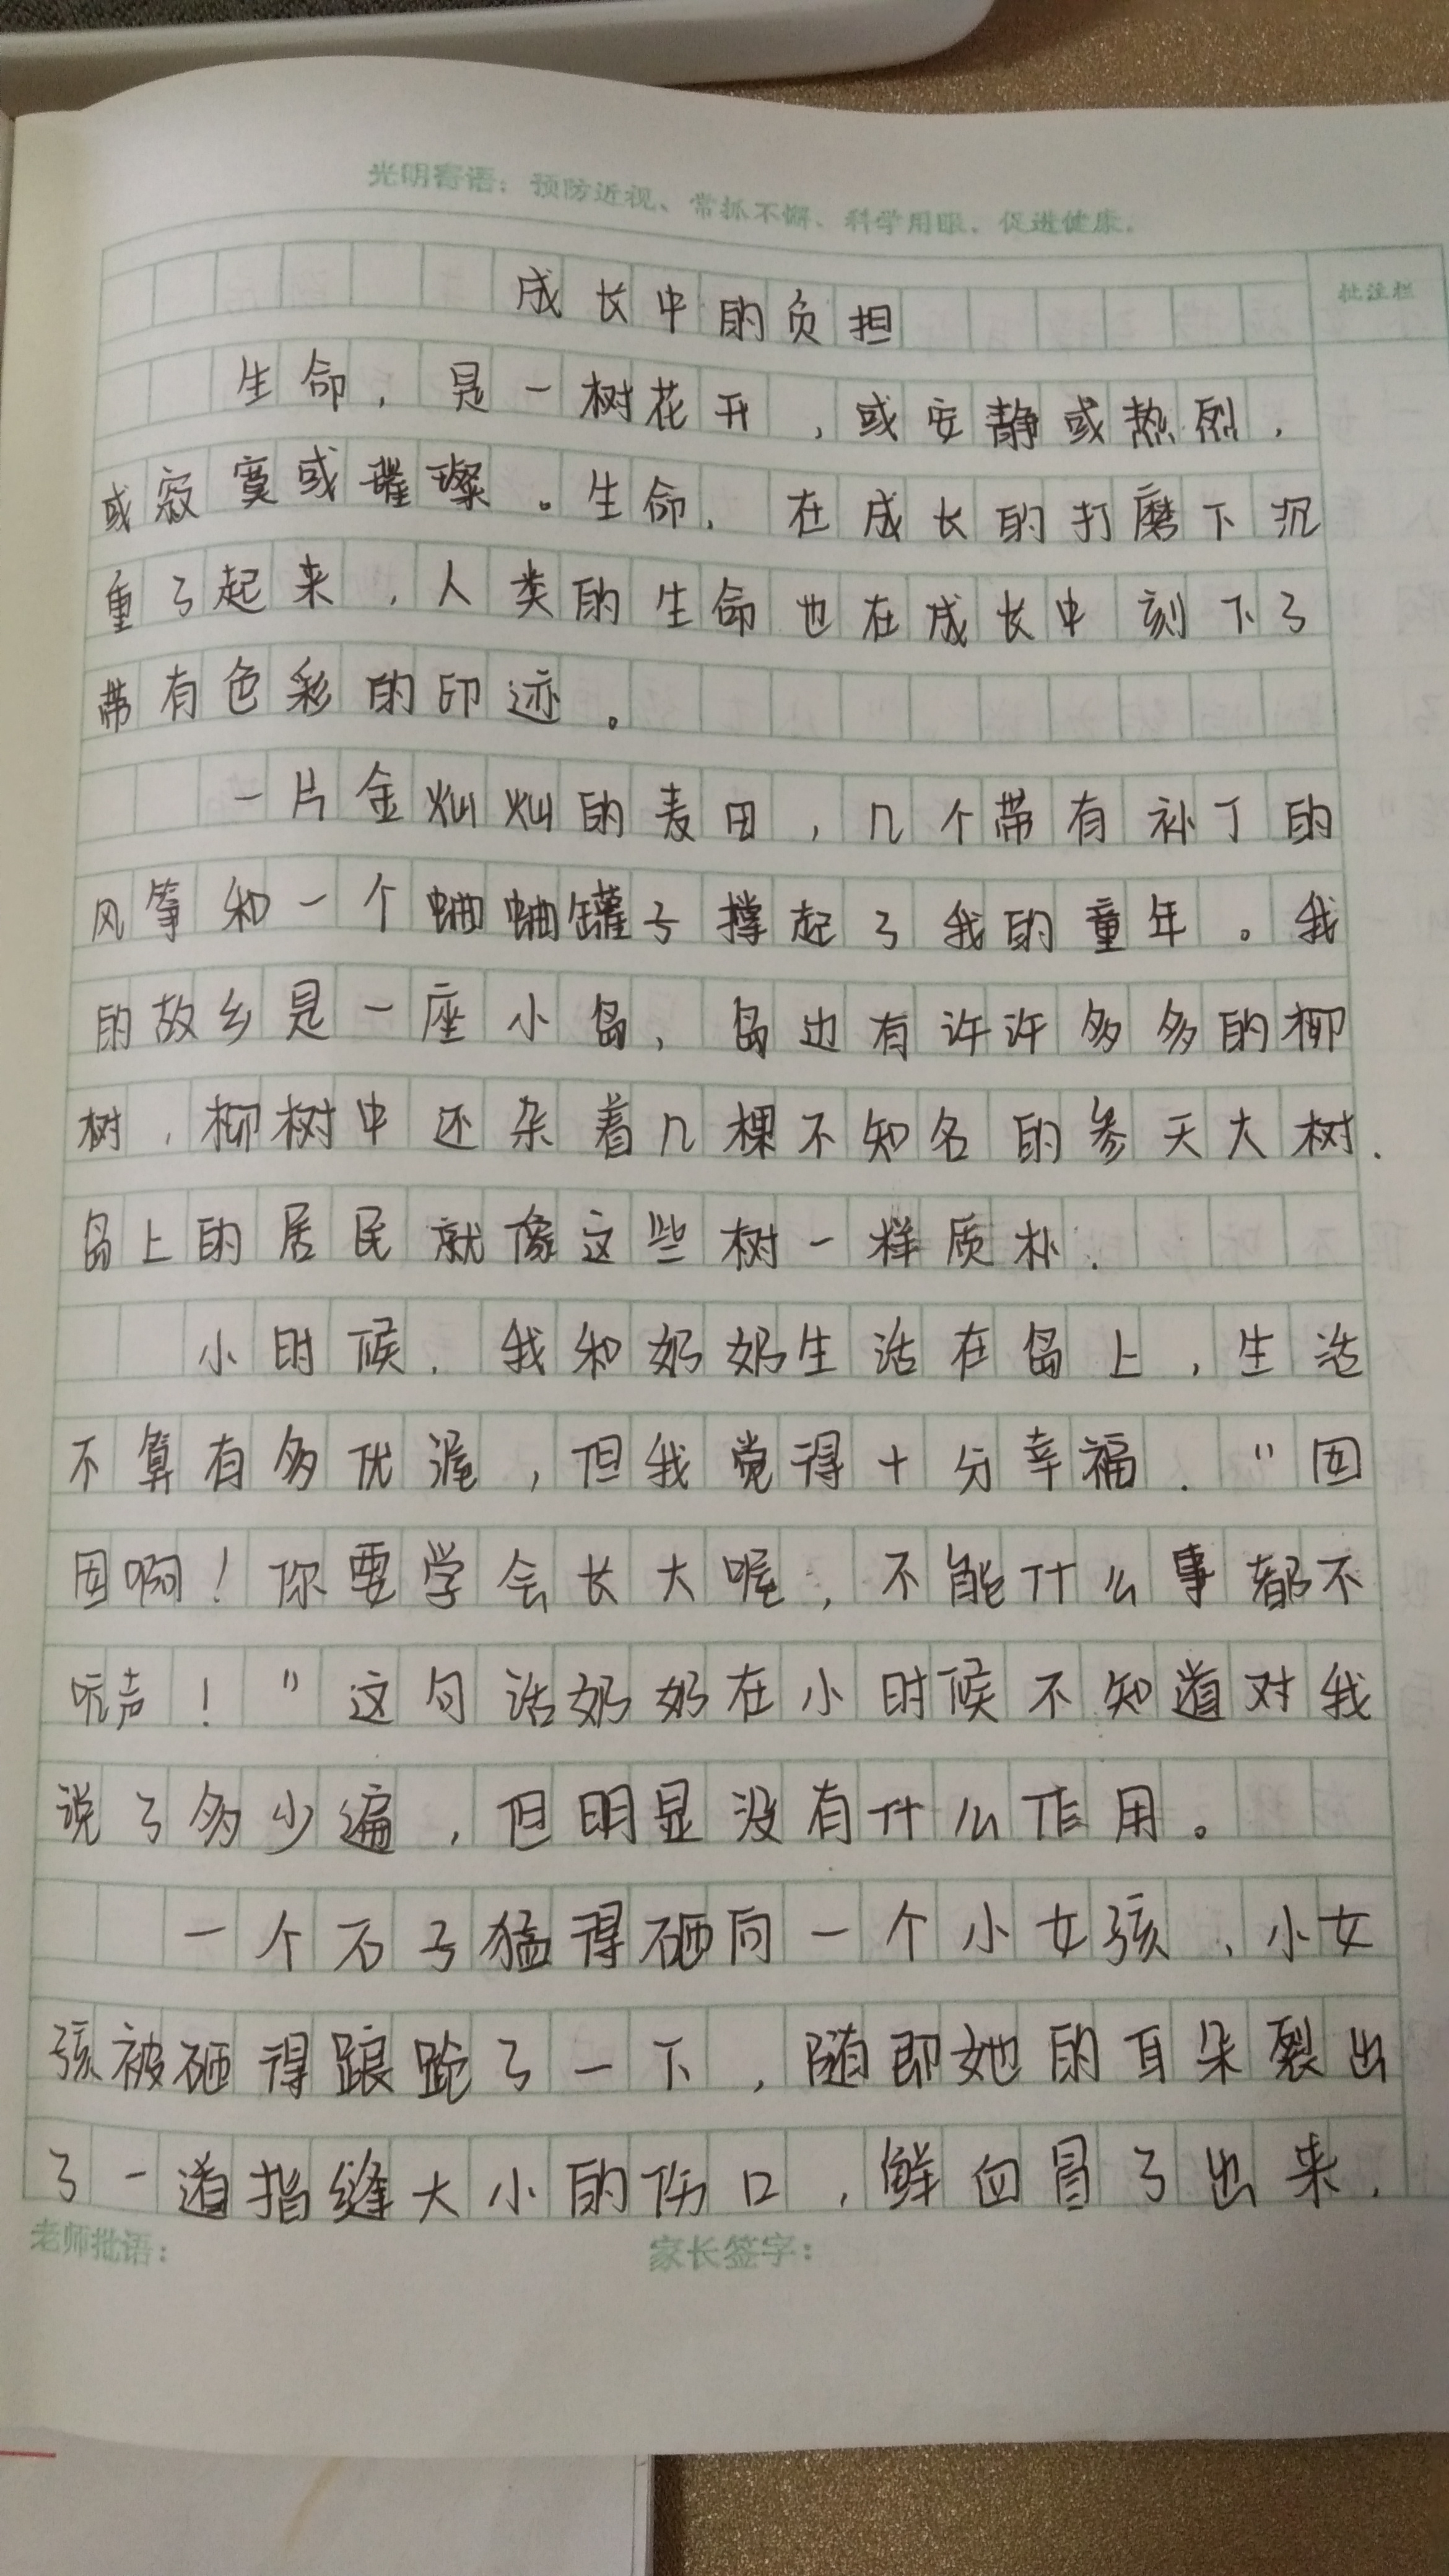 光明寄语：预防近视、常抓不懈、科学用眼、促进健康。
批注栏
成长中的负担
生命，是一树花开，或安静或热烈，
或寂寞或璀璨。生命，在成长的打磨下沉
重了起来，人类的生命也在成长中刻下了
带有色彩的印迹。
一片金灿灿的麦田，几个带有补丁的
风筝和一个蛐蛐罐子撑起了我的童年。我
的故乡是一座小岛，岛边有许许多多的柳
树，柳树中还杂着几棵不知名的参天大树.
岛上的居民就像这些树一样质朴.
小时候，我和奶奶生活在岛上，生活
不算有多优渥，但我觉得十分幸福."囡
囡啊！你要学会长大喔，不能什么事都不
吭声！"这句话奶奶在小时候不知道对我
说了多少遍，但明显没有什么作用。
一个石子猛得砸向一个小女孩，小女
孩被砸得踉跄了一下，随即她的耳朵裂出
了一道指缝大小的伤口，鲜血冒了出来.
老师批语：
家长签字：